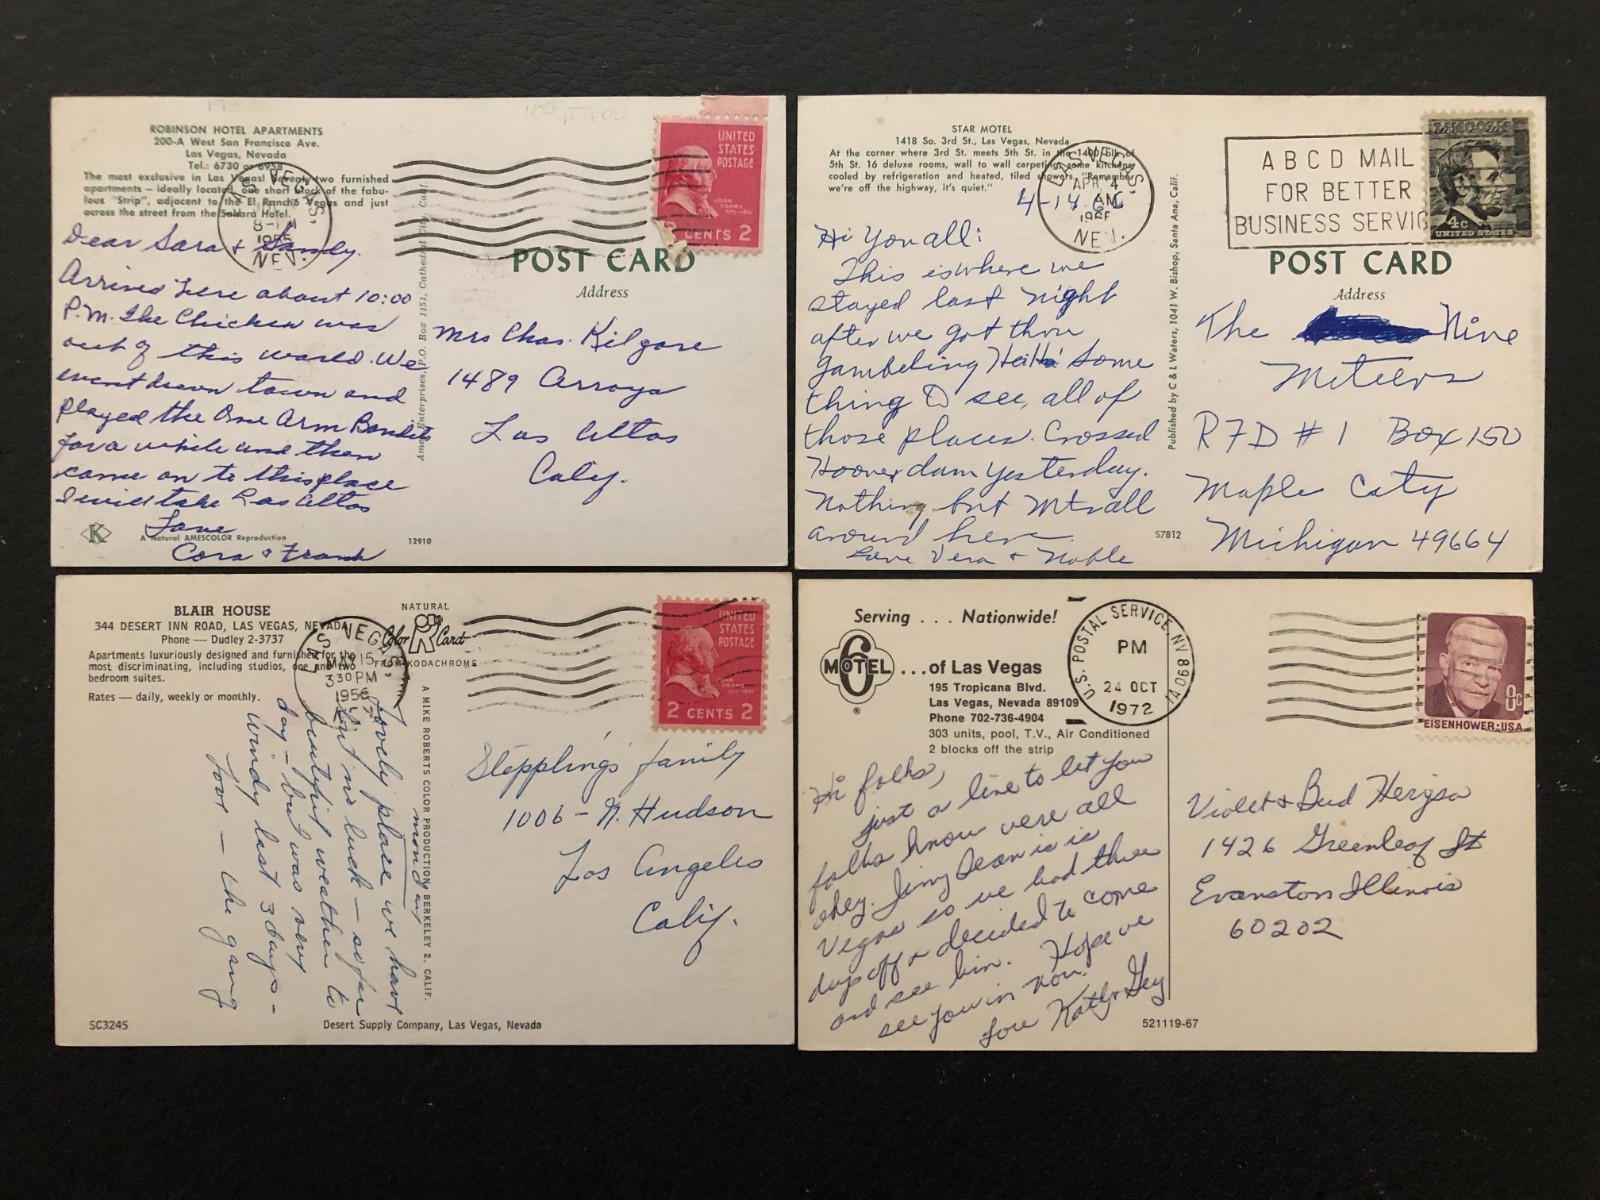 ROBINSON HOTEL APARTMENTS
200-A West San Francisco Ave.
Las Vegas, Nevada
Tel.: 6730 or 6958
The most exclusive in Las Vegas! Seventy-two furnished
apartments — ideally located, one short block of the fabu-
lous "Strip", adjacent to the El Rancho Vegas and just
across the street from the Sahara Hotel.
LAS VEGAS,
1955
NEV.
UNITED
STATES
POSTAGE
JOHN
ADAMS
CENTS 2
POST CARD
Address
Dear Sara & Sandy.
Arrived here about 10:00
P.M. The Chicken was
out of this world. We
went down town and
played the One Arm Bandits
for a while and then
came on to this place
I will take Las Altos
Love
Cora & Frank
Mrs Chas. Kilgore
1489 Arroya
Las Altos
Calif.
Enterprises, P.O. Box 1151, Cathedral City, Calif.
K
A Natural AMESCOLOR Reproduction
12910
STAR MOTEL
1418 So. 3rd St., Las Vegas, Nevada
At the corner where 3rd St. meets 5th St. in the 1400 blk of
5th St. 16 deluxe rooms, wall to wall carpeting, some kitchens,
cooled by refrigeration and heated, tiled showers. "Remember
we're off the highway, it's quiet."
4-14
LAS VEGAS.
APR 4
AM
NEV.
A B C D MAIL
FOR BETTER
BUSINESS SERVIC
LINCOLN
4c
UNITED STATES
POST CARD
Address
Hi You all:
This is where we
stayed last night
after we got thru
gambeling HaHa some
thing to see, all of
those places. Crossed
Hoover dam yesterday.
Nothing but Mts all
around here.
Love Vera & Noble
The Nine
Meteers
RFD #1 Box 150
Maple City
Michigan 49664
Published by C & L Waters, 1041 W. Bishop, Santa Ana, Calif.
S7812
BLAIR HOUSE
344 DESERT INN ROAD, LAS VEGAS, NEVADA
Phone — Dudley 2-3737
Apartments luxuriously designed and furnished for the
most discriminating, including studios, one and two
bedroom suites.
Rates — daily, weekly or monthly.
NATURAL
Color R Card
FROM KODACHROME
LAS VEGAS,
MAY 15
3 30 PM
1956
UNITED
STATES
POSTAGE
JOHN
ADAMS
2 CENTS 2
Lovely place we have
but no luck — so far
beautiful weather to
day — but was very
windy last 3 days -
Love — the gang
A MIKE ROBERTS COLOR PRODUCTION, BERKELEY 2, CALIF.
Stepplings family
1006 - N. Hudson
Los Angeles
Calif.
SC3245
Desert Supply Company, Las Vegas, Nevada
Serving . . . Nationwide!
MOTEL 6
. . . of Las Vegas
195 Tropicana Blvd.
Las Vegas, Nevada 89109
Phone 702-736-4904
303 units, pool, T.V., Air Conditioned
2 blocks off the strip
U.S. POSTAL SERVICE, NV
PM
24 OCT
1972
8c
EISENHOWER·USA
Hi folks,
just a line to let you
folks know were all
okey. Jimy Dean is in
Vegas so we had three
days off & decided to come
and see him. Hope we
see you in Nov.
Love Kath & Gey
Violet & Bud Hergsa
1426 Greenleaf St
Evanston Illinois
60202
521119-67